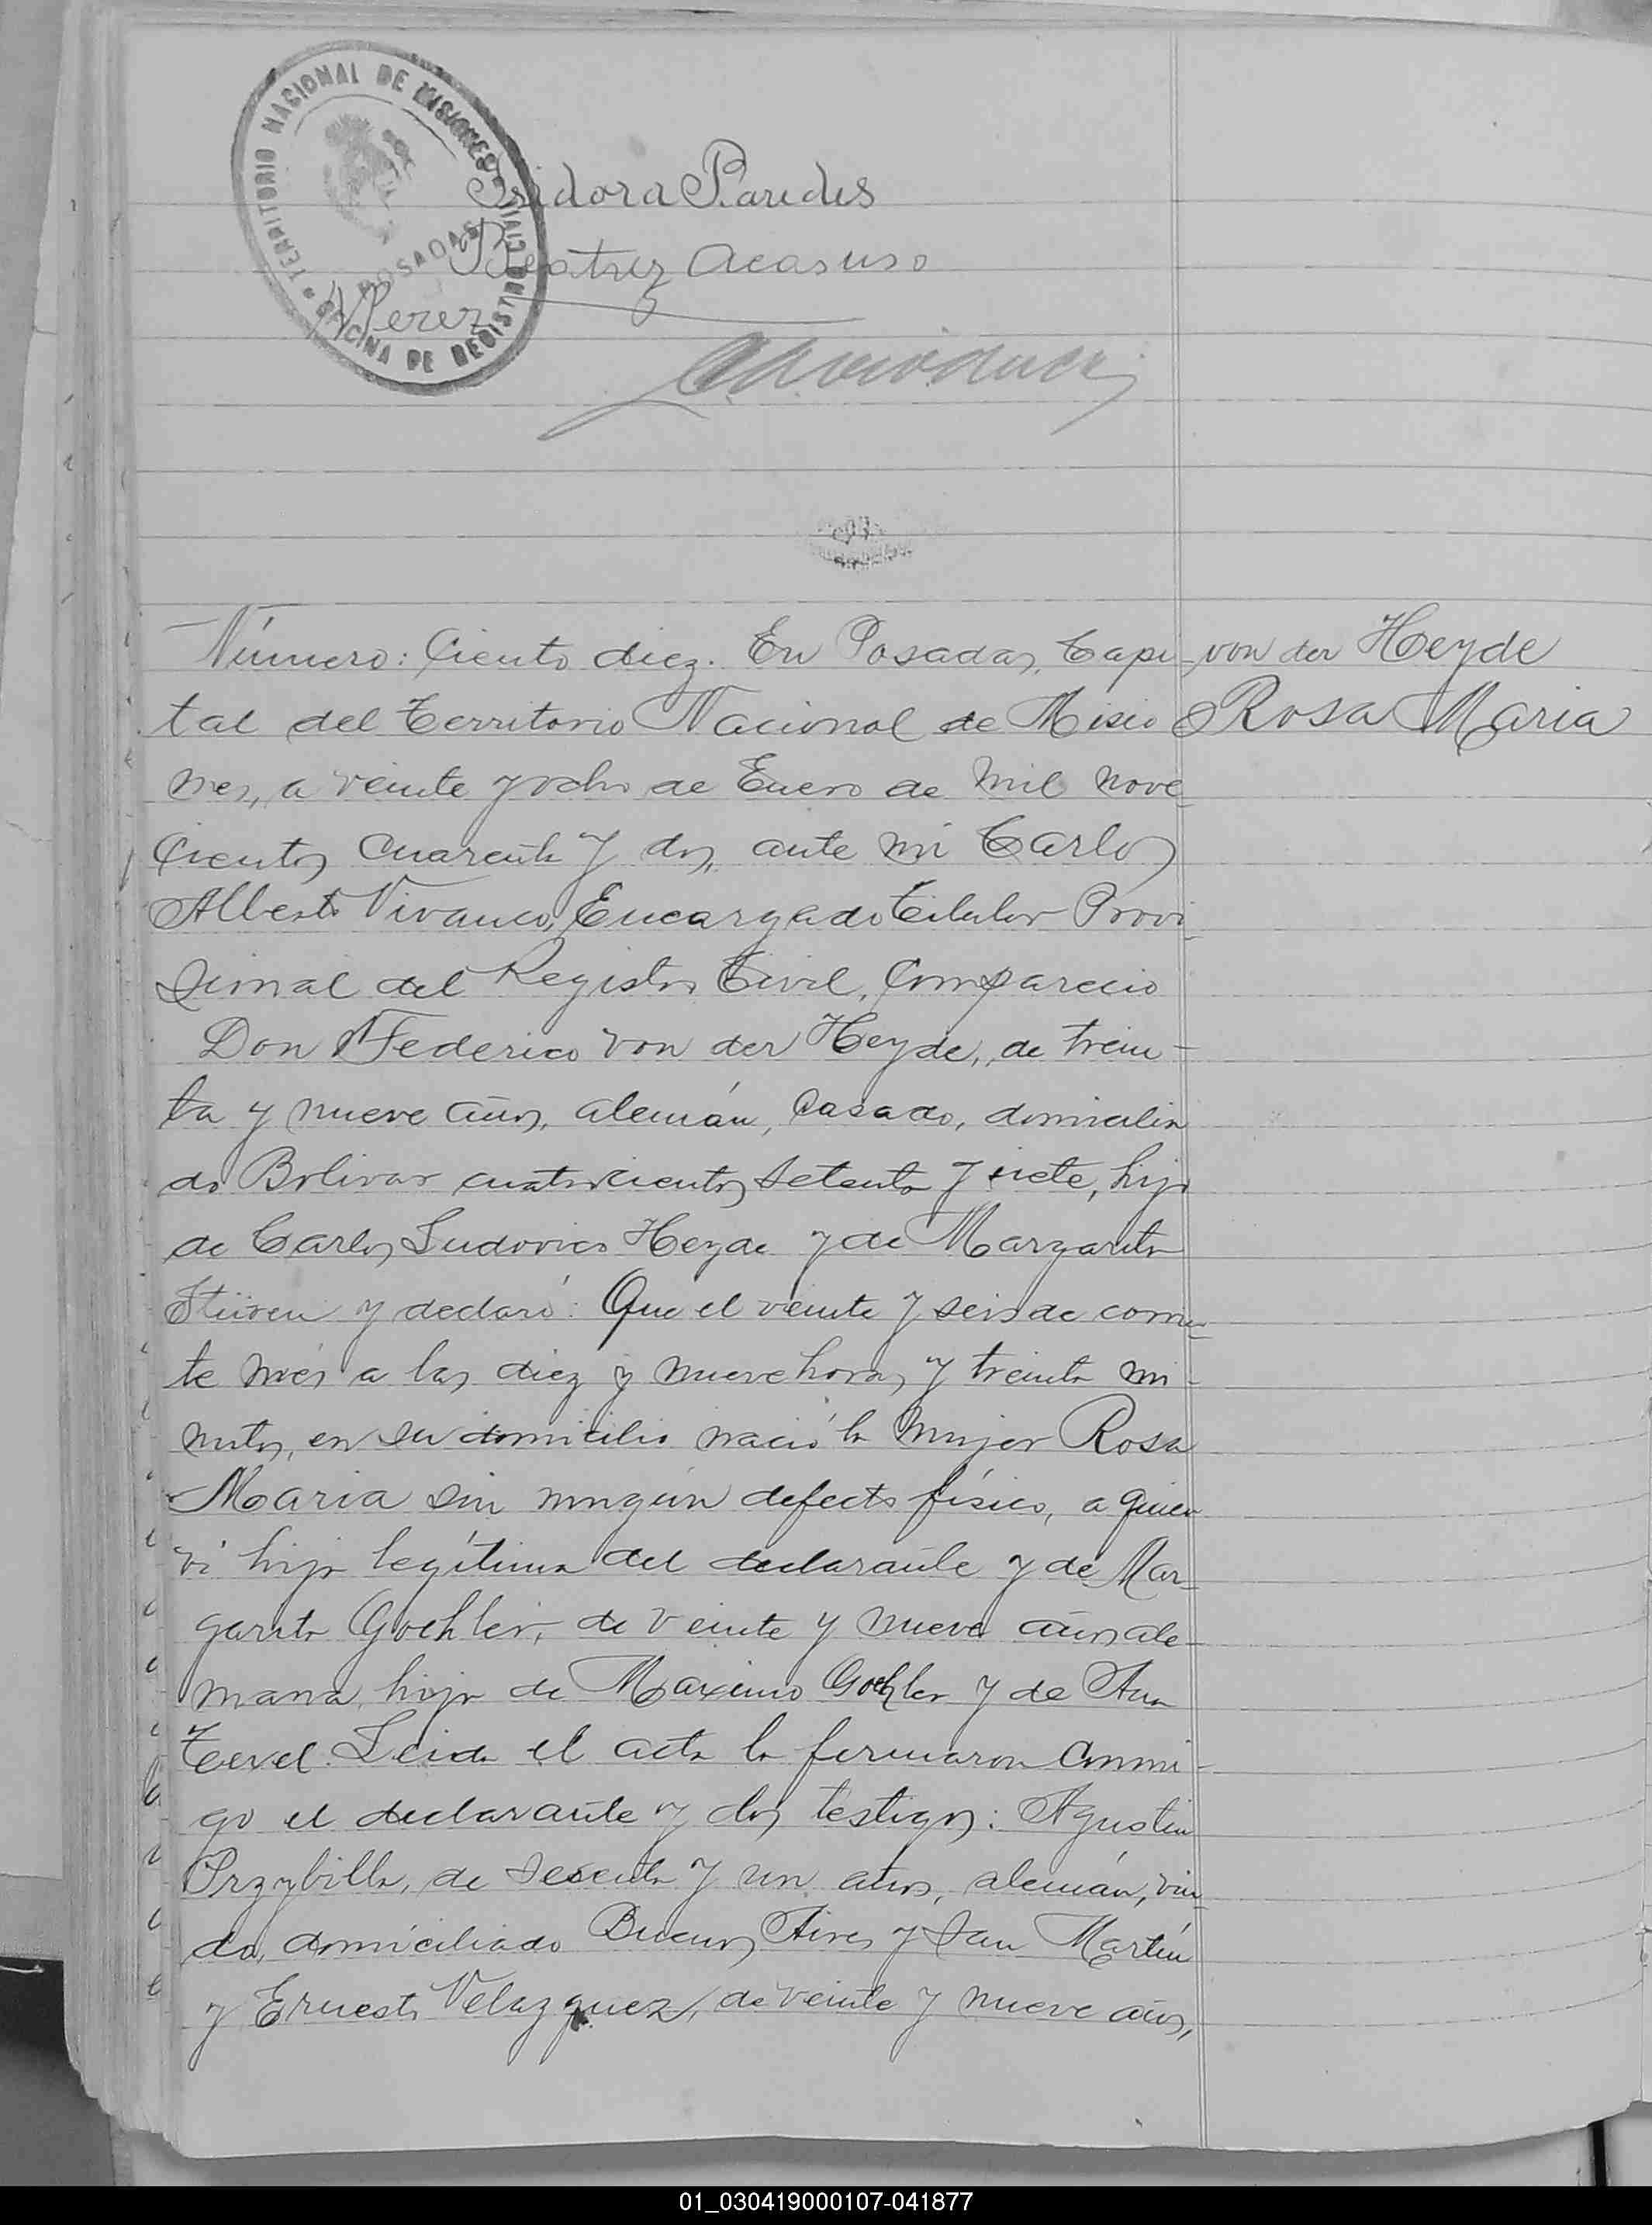 TERRITORIO NACIONAL DE MISIONES
OFICINA DE REGISTRO CIVIL
POSADAS
Isidora Paredes
Beatriz Acasuso
Perez
Número: Ciento diez. En Posadas, Capi-
tal del Territorio Nacional de Misio
nes, a veinte y ocho de Enero de mil nove
cientos cuarenta y dos, ante mi Carlos
Alberto Vivanco, Encargado Titular Provi
sional del Registro Civil, Compareció
Don Federico von der Heyde, de trein-
ta y nueve años, alemán, casado, domicilia
do Bolivar cuatrocientos setenta y siete, hijo
de Carlos Ludovico Heyde y de Margarita
Stüven y declaró: Que el veinte y seis de corrien-
te més a las diez y nueve horas y treinta mi-
nutos, en su domicilio nació la mujer Rosa
Maria sin ningún defecto físico, a quien
vi hija legítima del declarante y de Mar-
garita Goehler, de veinte y nueve años ale-
mana, hija de Maximo Goehler y de Ana
Tewel. Leida el acta la firmaron conmi-
go el declarante y dos testigos: Agustin
Przybilla, de sesenta y un años, alemán, viu-
do, domiciliado Buenos Aires y San Martín
y Ernesto Velazquez, de veinte y nueve años,
von der Heyde
Rosa Maria
01_030419000107-041877